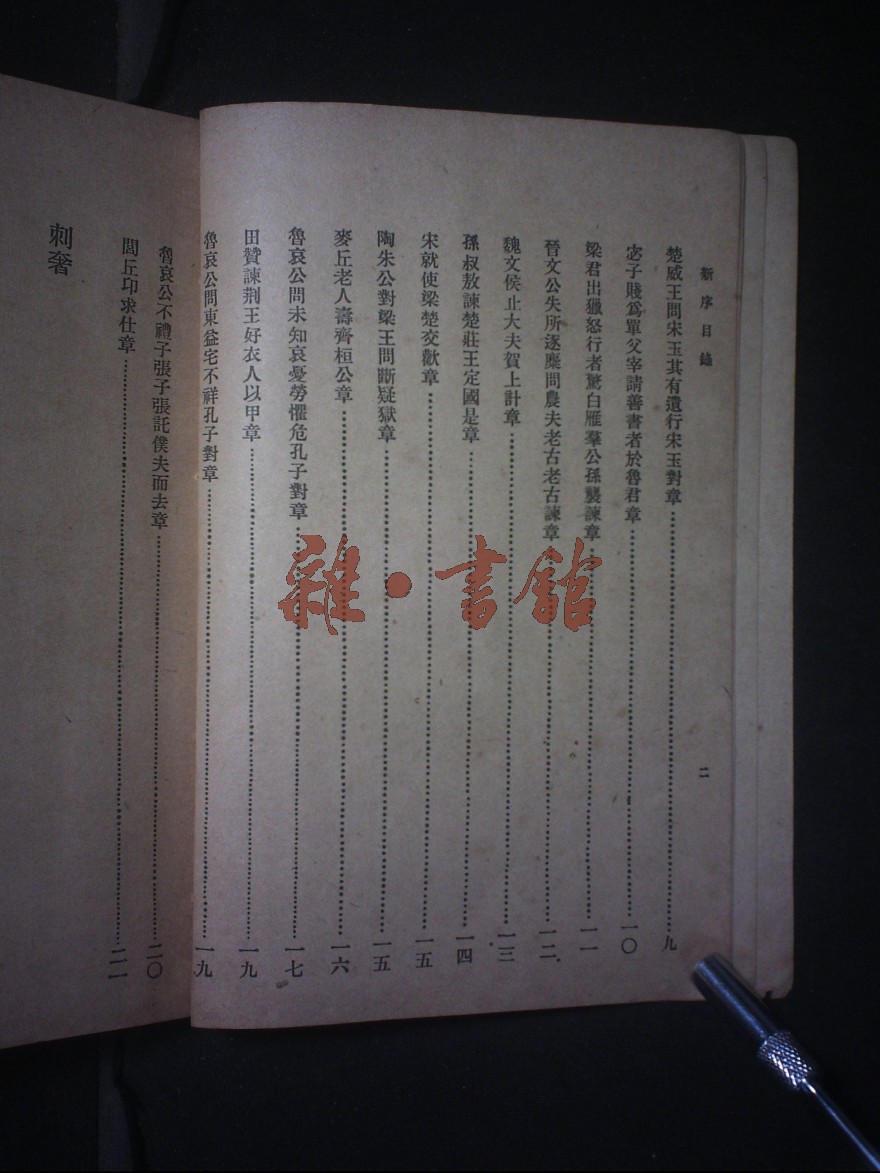 新序目錄
二
楚威王問宋玉其有遺行宋玉對章 九
宓子賤爲單父宰請善書者於魯君章 一〇
梁君出獵怒行者驚白雁羣公孫襲諫章 一一
晉文公失所逐麋問農夫老古老古諫章 一二
魏文侯止大夫賀上計章 一三
孫叔敖諫楚莊王定國是章 一四
宋就使梁楚交歡章 一五
陶朱公對梁王問斷疑獄章 一五
麥丘老人壽齊桓公章 一六
魯哀公問未知哀憂勞懼危孔子對章 一七
田贊諫荆王好衣人以甲章 一九
魯哀公問東益宅不祥孔子對章 一九
魯哀公不禮子張子張託僕夫而去章 二〇
閭丘卭求仕章 二一
刺奢
雜·書館